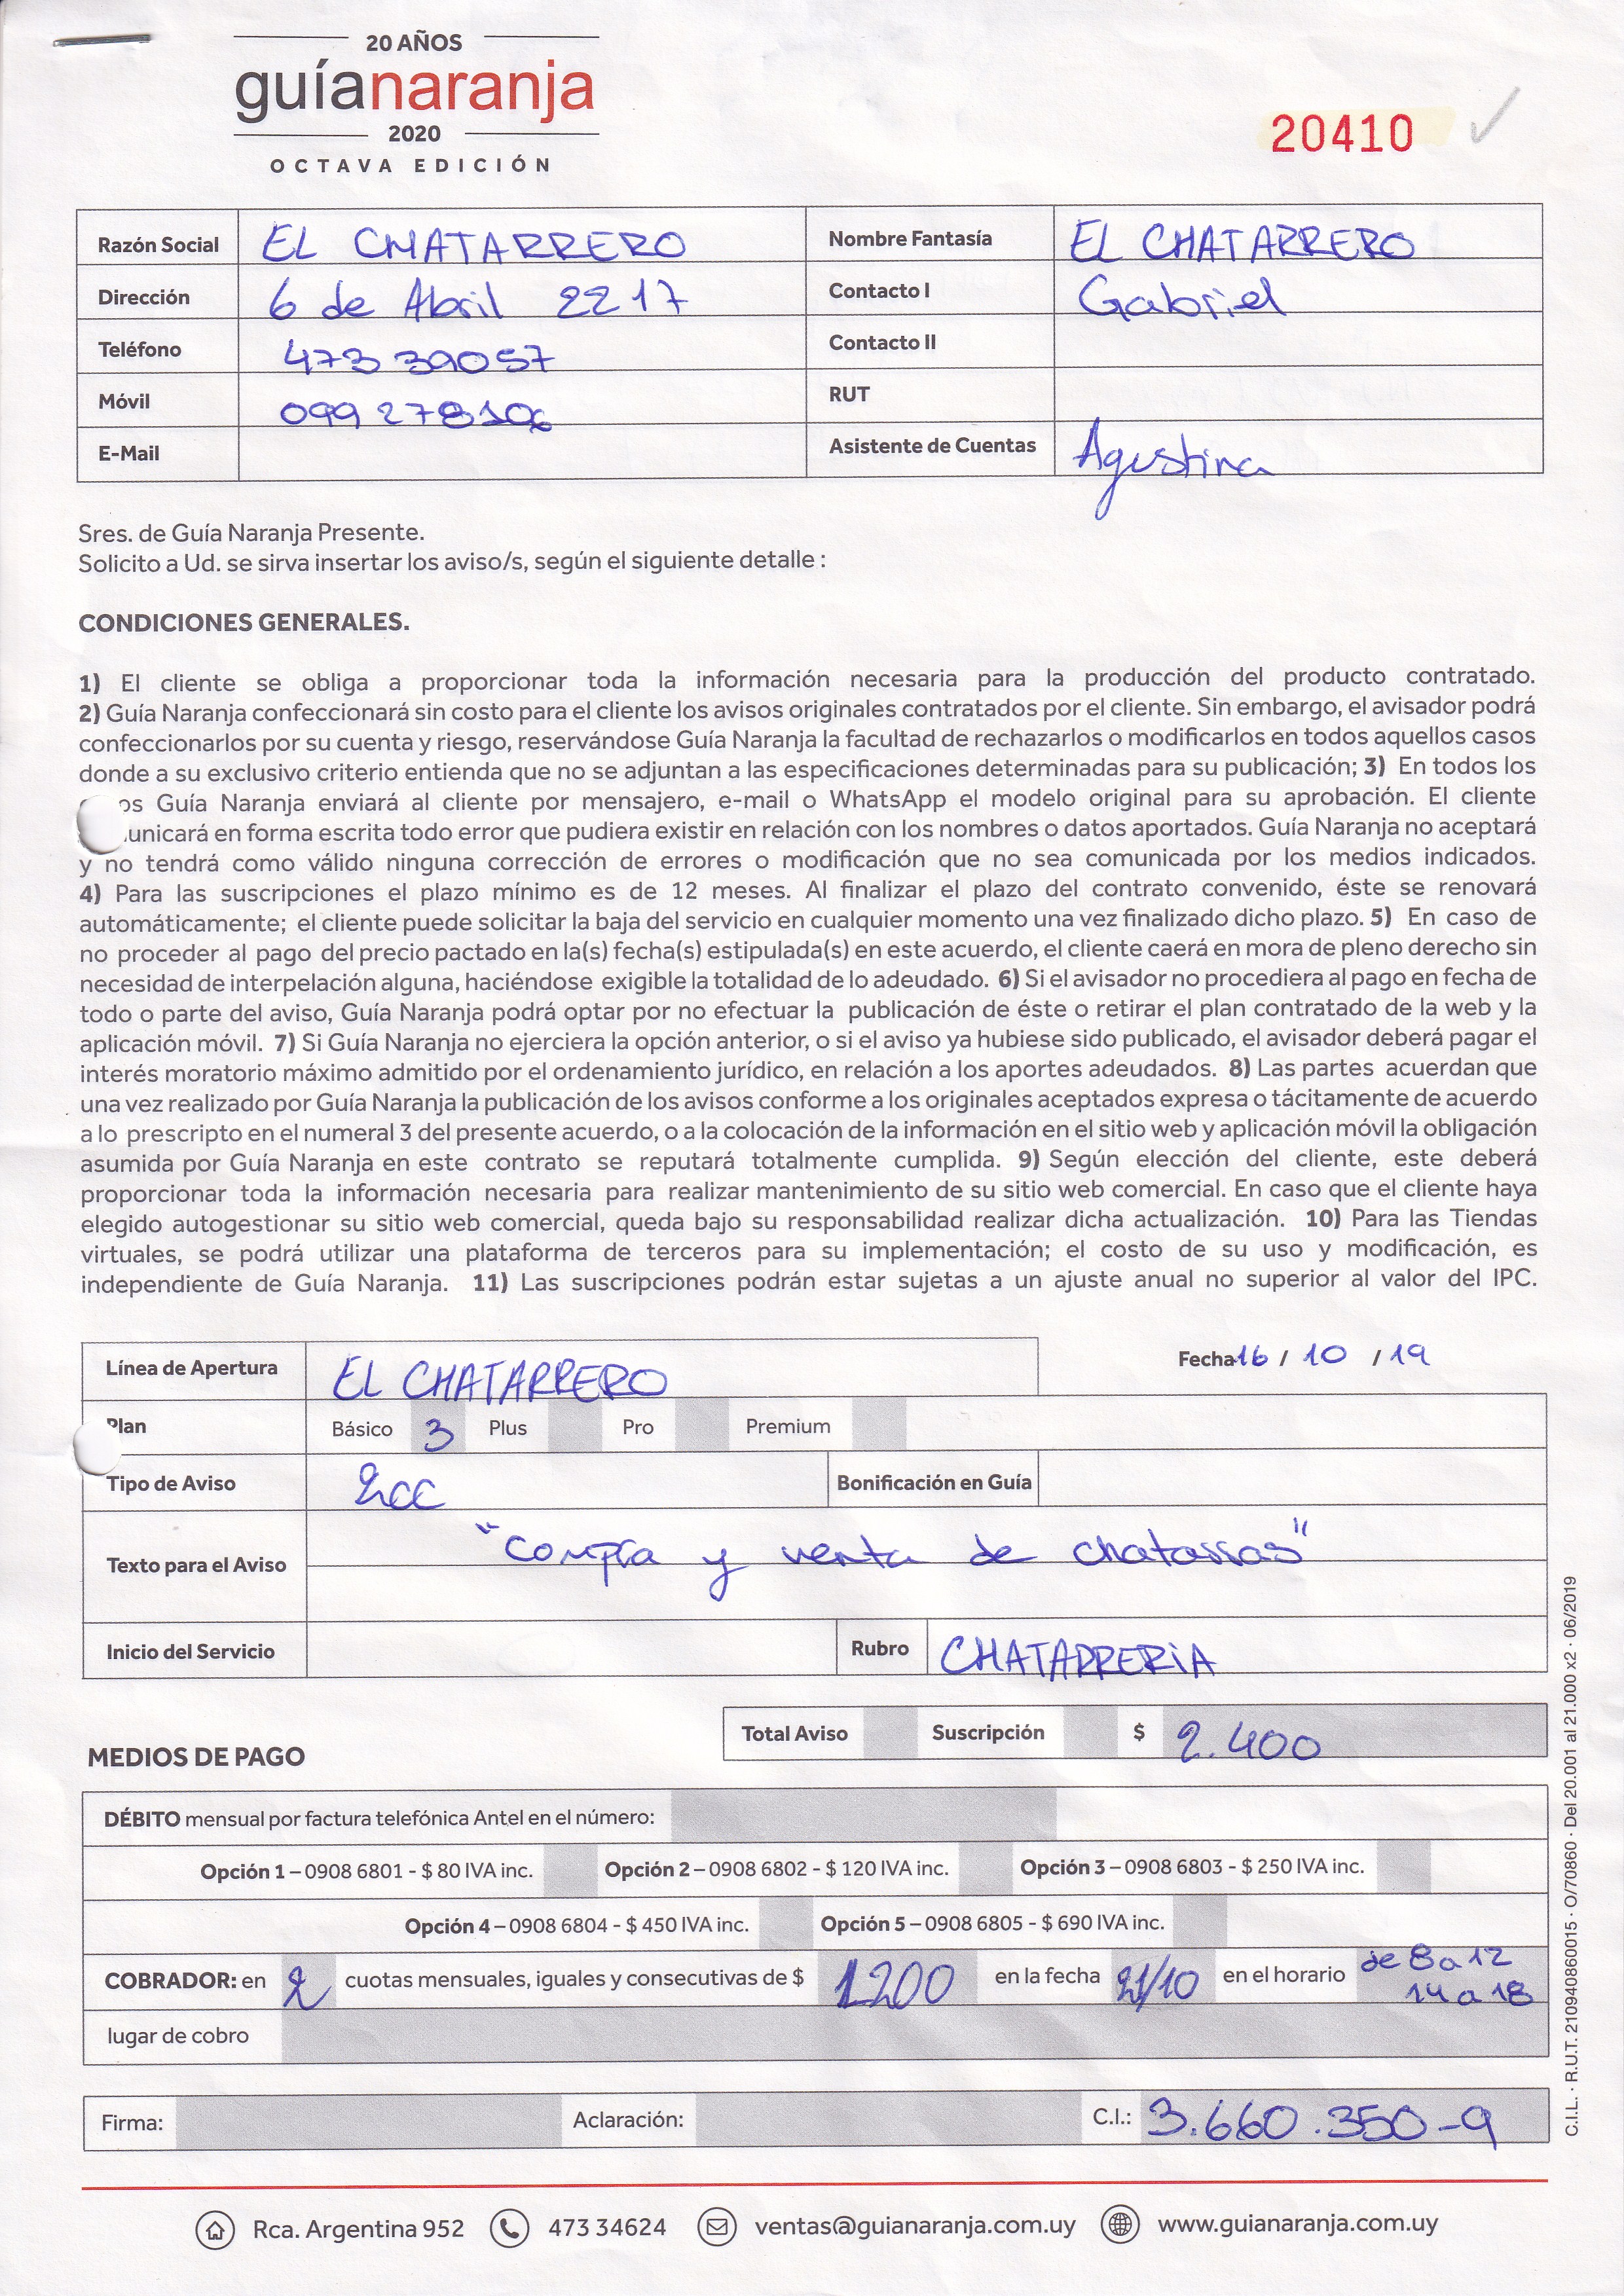 20 AÑOS
guíanaranja
2020
OCTAVA EDICIÓN
20410
Razón Social EL CHATARRERO Nombre Fantasía EL CHATARRERO
Dirección 6 de Abril 2217 Contacto I Gabriel
Teléfono 473 39057 Contacto II
Móvil 099 278106 RUT
E-Mail Asistente de Cuentas Agustina
Sres. de Guía Naranja Presente.
Solicito a Ud. se sirva insertar los aviso/s, según el siguiente detalle :
CONDICIONES GENERALES.
1) El cliente se obliga a proporcionar toda la información necesaria para la producción del producto contratado.
2) Guía Naranja confeccionará sin costo para el cliente los avisos originales contratados por el cliente. Sin embargo, el avisador podrá
confeccionarlos por su cuenta y riesgo, reservándose Guía Naranja la facultad de rechazarlos o modificarlos en todos aquellos casos
donde a su exclusivo criterio entienda que no se adjuntan a las especificaciones determinadas para su publicación; 3) En todos los
os Guía Naranja enviará al cliente por mensajero, e-mail o WhatsApp el modelo original para su aprobación. El cliente
unicará en forma escrita todo error que pudiera existir en relación con los nombres o datos aportados. Guía Naranja no aceptará
y no tendrá como válido ninguna corrección de errores o modificación que no sea comunicada por los medios indicados.
4) Para las suscripciones el plazo mínimo es de 12 meses. Al finalizar el plazo del contrato convenido, éste se renovará
automáticamente; el cliente puede solicitar la baja del servicio en cualquier momento una vez finalizado dicho plazo. 5) En caso de
no proceder al pago del precio pactado en la(s) fecha(s) estipulada(s) en este acuerdo, el cliente caerá en mora de pleno derecho sin
necesidad de interpelación alguna, haciéndose exigible la totalidad de lo adeudado. 6) Si el avisador no procediera al pago en fecha de
todo o parte del aviso, Guía Naranja podrá optar por no efectuar la publicación de éste o retirar el plan contratado de la web y la
aplicación móvil. 7) Si Guía Naranja no ejerciera la opción anterior, o si el aviso ya hubiese sido publicado, el avisador deberá pagar el
interés moratorio máximo admitido por el ordenamiento jurídico, en relación a los aportes adeudados. 8) Las partes acuerdan que
una vez realizado por Guía Naranja la publicación de los avisos conforme a los originales aceptados expresa o tácitamente de acuerdo
a lo prescripto en el numeral 3 del presente acuerdo, o a la colocación de la información en el sitio web y aplicación móvil la obligación
asumida por Guía Naranja en este contrato se reputará totalmente cumplida. 9) Según elección del cliente, este deberá
proporcionar toda la información necesaria para realizar mantenimiento de su sitio web comercial. En caso que el cliente haya
elegido autogestionar su sitio web comercial, queda bajo su responsabilidad realizar dicha actualización. 10) Para las Tiendas
virtuales, se podrá utilizar una plataforma de terceros para su implementación; el costo de su uso y modificación, es
independiente de Guía Naranja. 11) Las suscripciones podrán estar sujetas a un ajuste anual no superior al valor del IPC.
Línea de Apertura EL CHATARRERO Fecha 16 / 10 / 19
Plan Básico 3 Plus Pro Premium
Tipo de Aviso 2cc Bonificación en Guía
Texto para el Aviso "Compra y venta de chatarras"
Inicio del Servicio Rubro CHATARRERIA
Total Aviso Suscripción $ 2.400
MEDIOS DE PAGO
DÉBITO mensual por factura telefónica Antel en el número:
Opción 1 – 0908 6801 - $ 80 IVA inc. Opción 2 – 0908 6802 - $ 120 IVA inc. Opción 3 – 0908 6803 - $ 250 IVA inc.
Opción 4 – 0908 6804 - $ 450 IVA inc. Opción 5 – 0908 6805 - $ 690 IVA inc.
COBRADOR: en 2 cuotas mensuales, iguales y consecutivas de $ 1200 en la fecha 21/10 en el horario de 8 a 12
14 a 18
lugar de cobro
Firma: Aclaración: C.I.: 3.660.350-9
C.I.L. · R.U.T. 210940860015 · O/70860 · Del 20.001 al 21.000 x2 · 06/2019
Rca. Argentina 952 473 34624 ventas@guianaranja.com.uy www.guianaranja.com.uy